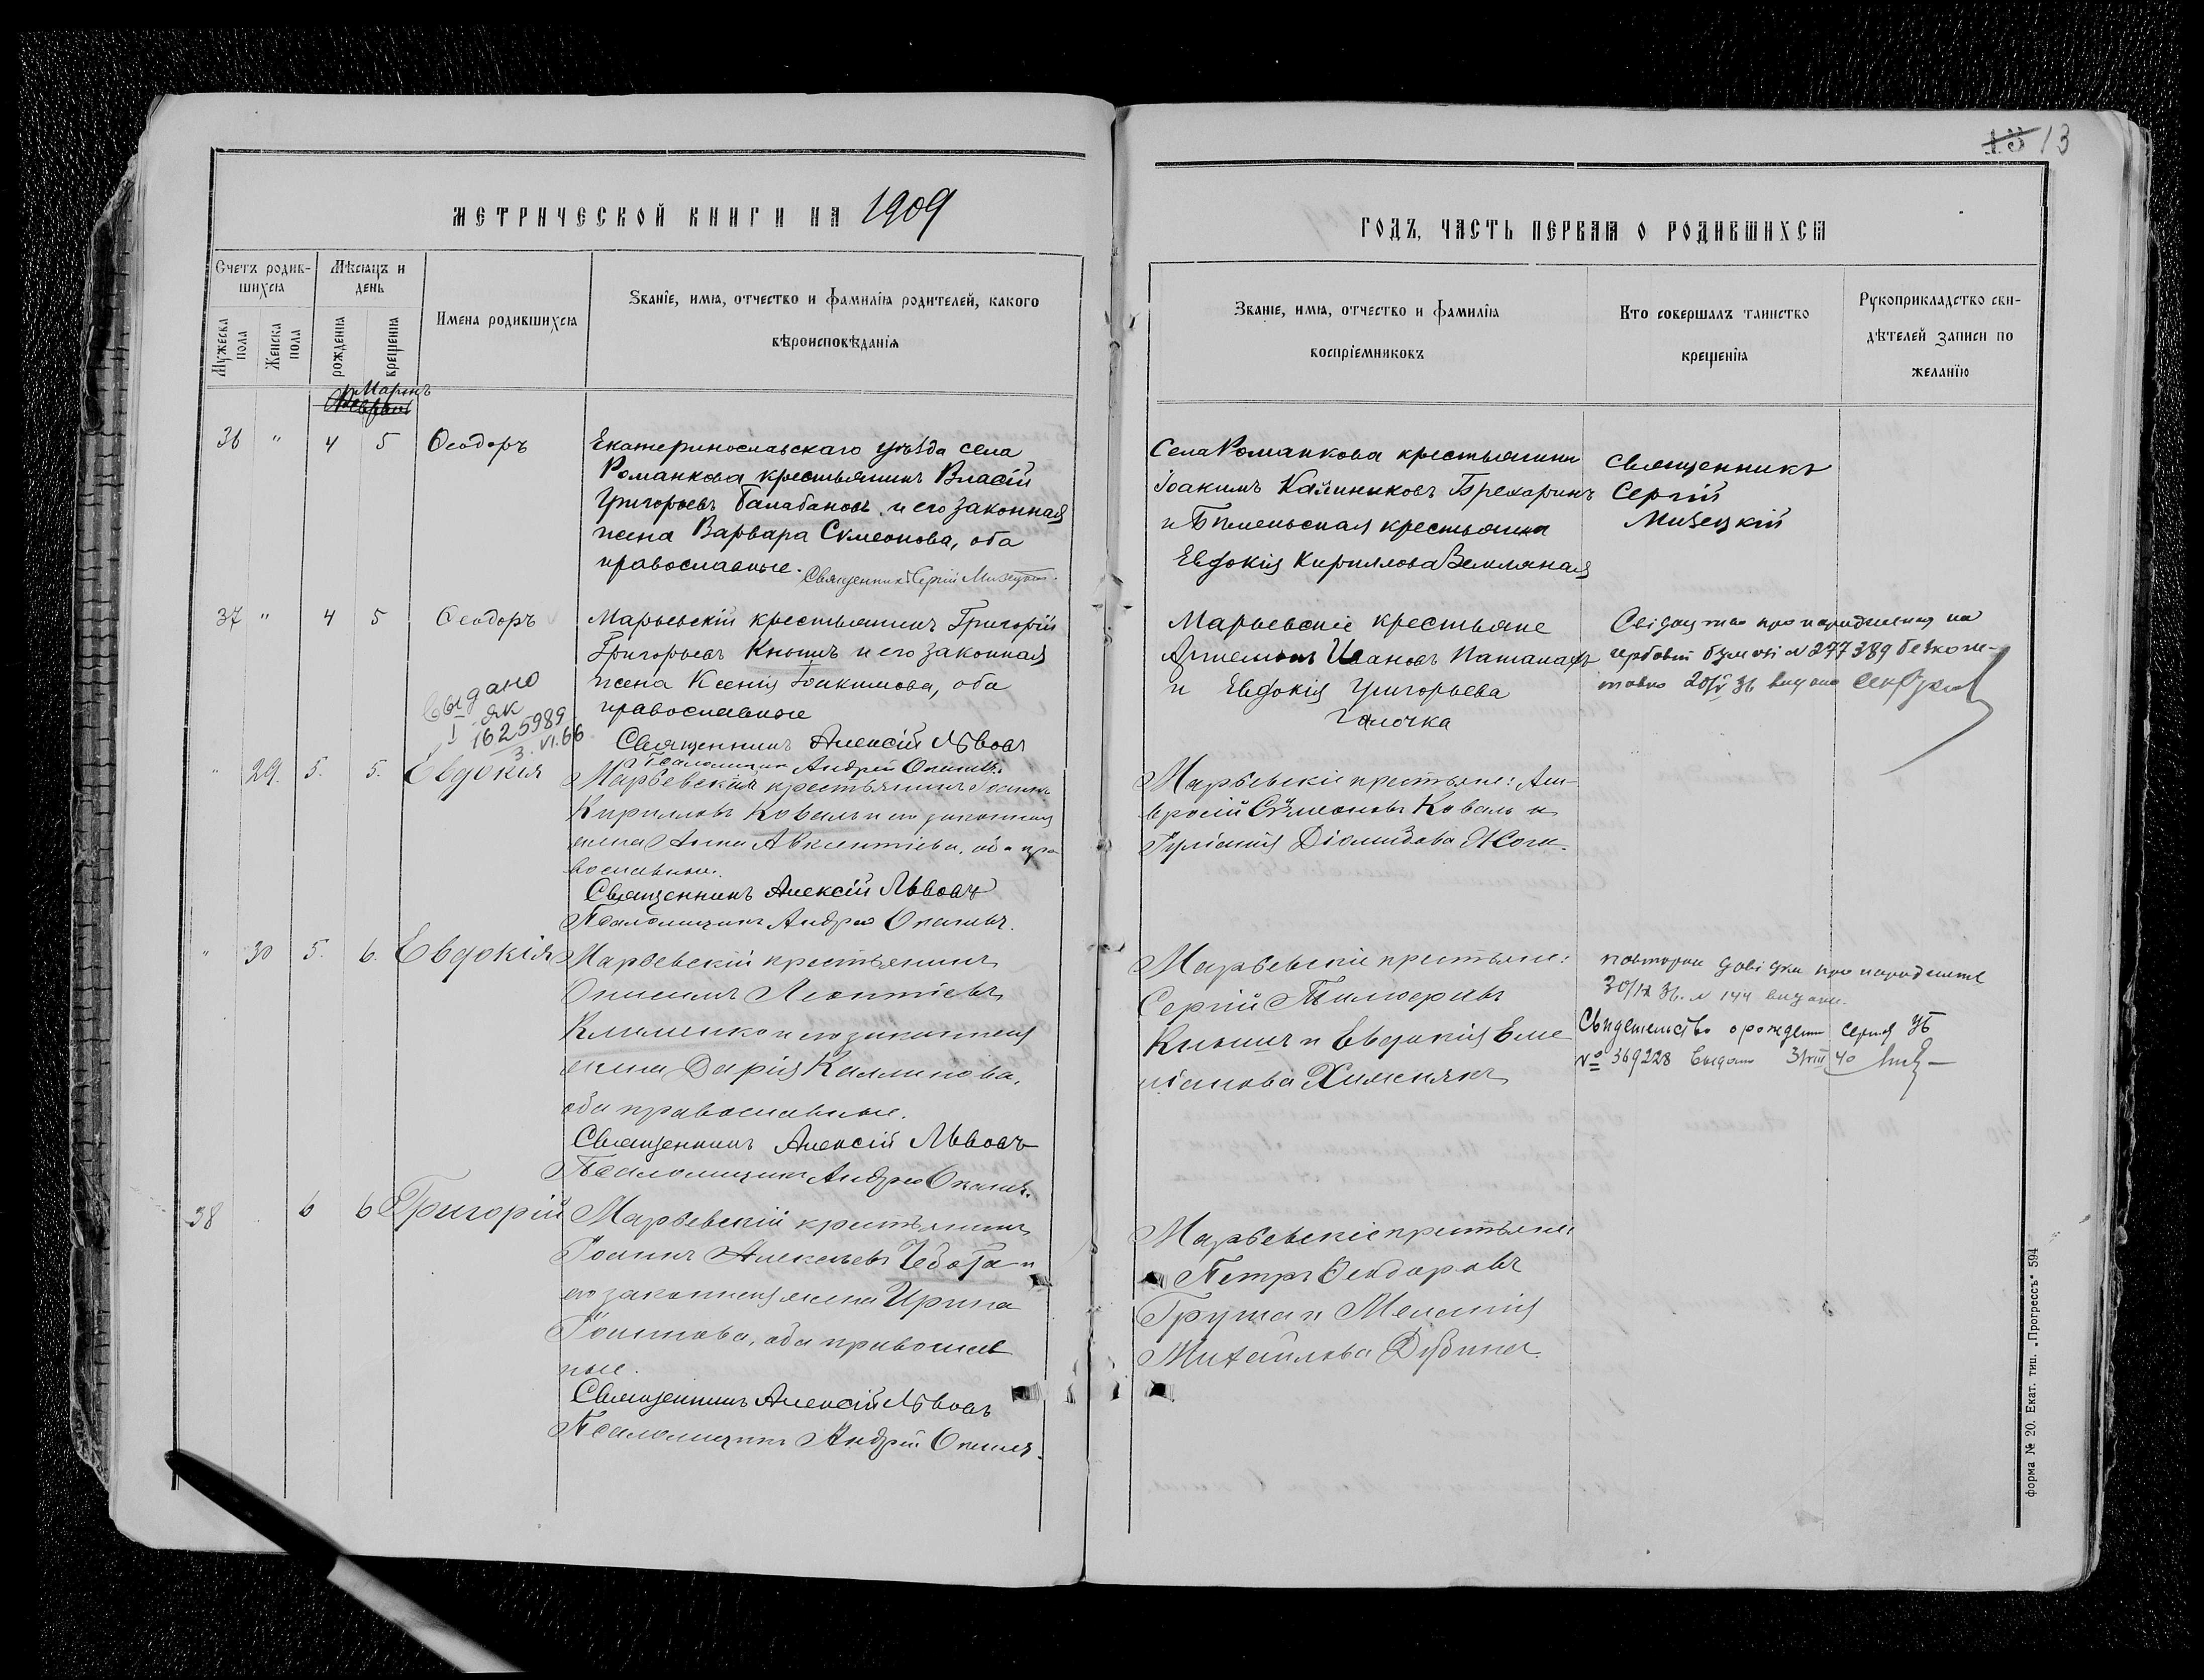 13 13
МЕТРИЧЕСКОЙ КНИГИ НА 1909
ГОДЪ, ЧАСТЬ ПЕРВАЯ О РОДИВШИХСЯ
Счетъ родив-
шихся
Мужеска
пола
Женска
пола
Мѣсяцъ и
день
рожденія
крещенія
Имена родившихся
Званіе, имя, отчество и фамилія родителей, какого
вѣроисповѣданія
Званіе, имя, отчество и фамилія
воспріемниковъ
Кто совершалъ таинство
крещенія
Рукоприкладство сви-
дѣтелей записи по
желанію
Мартъ
Февраль
36 " 4 5 Ѳеодоръ
Екатеринославскаго уѣзда села
Романкова крестьянинъ Власій
Григорьевъ Балабановъ и его законная
жена Варвара Сѵмеонова, оба
православные. Священникъ Сергій Мизецкій.
Села Романкова крестьянинъ
Іоакимъ Калиниковъ
и крестьянка
Евдокія Кириллова Земляная
Священникъ
Сергій
Мизецкій
37 " 4 5 Ѳеодоръ
Марьевскій крестьянинъ Григорій
Григорьевъ Кнышъ и его законная
жена Ксенія Іоакимова, оба
православные
Священникъ Алексій Львовъ
Псаломщикъ Андрей
Выдано
ЯК
I 1625989
3.VI.66
Марьевскіе крестьяне
Ивановъ
и Евдокія Григорьева
Галочка
Свідоцтво про народження на
гербовій бумазі N 277389 безкош-
товно 20/V 36 видано
" 29. 5. 5. Евдокія
Марьевскій крестьянинъ Іоаннъ
Кирилловъ Коваль и его законная
жена Анна Авксентіева, оба пра-
вославные.
Священникъ Алексій Львовъ
Псаломщикъ Андрей
Марьевскіе крестьяне: Ам-
вросій Сѵмеоновъ Коваль и
Іуліанія Діомидова
" 30 5. 6. Евдокія
Марьевскій крестьянинъ
Онисимъ Леонтіевъ
Клименко и его законная
жена Дарія Каллинова,
оба православные.
Священникъ Алексій Львовъ
Псаломщикъ Андрей
Марьевскіе крестьяне:
Сергій
Кнышъ и Евдокія Еме
ліанова Хименякъ
повторна довідка про народження
30/ІХ 36. N 144 видана.
Свидетельство о рождении серия УБ
№ 369228 выдано 31/VIII 40
38 6 6 Григорій
Марьевскій крестьянинъ
Іоаннъ Алексѣевъ Чебота и
его законная жена Ирина
Іоаннова, оба православ
ные.
Священникъ Алексій Львовъ
Псаломщикъ Андрей
Марьевскіе крестьяне:
Петръ Ѳеодоровъ
Груша и Меланія
Михайлова Дубина.
форма № 20. Екат. тип. „Прогрессъ" 594